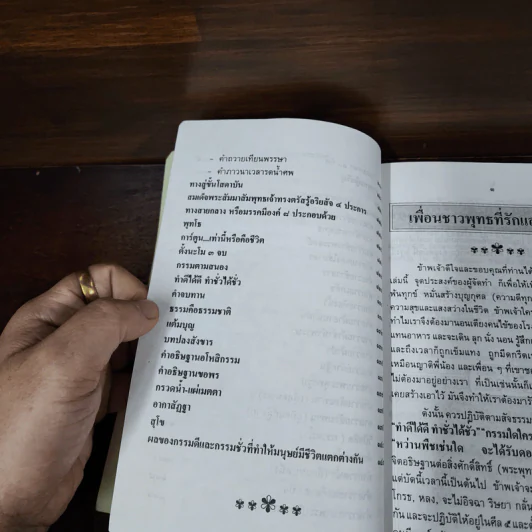 - คำถวายเทียนพรรษา
- คำภาวนาเวลารดน้ำศพ
ทางสู่ชั้นโสดาบัน
สมเด็จพระสัมมาสัมพุทธเจ้าทรงตรัสรู้อริยสัจ ๔ ประการ
ทางสายกลาง หรือมรรคมีองค์ ๘ ประกอบด้วย
พุทโธ
การ์ตูน...เท่านี้หรือคือชีวิต
ตั้งนะโม ๓ จบ
กรรมตามสนอง
ทำดีได้ดี ทำชั่วได้ชั่ว
คำจบทาน
ธรรมคือธรรมชาติ
แต้มบุญ
บทปลงสังขาร
คำอธิษฐานอโหสิกรรม
คำอธิษฐานขอพร
กรวดน้ำ-แผ่เมตตา
อากาสัฏฐา
สุโข
ผลของกรรมดีและกรรมชั่วที่ทำให้มนุษย์มีชีวิตแตกต่างกัน
เพื่อนชาวพุทธที่รักและ
ข้าพเจ้าดีใจและขอบคุณที่ท่านได้
เล่มนี้ จุดประสงค์ของผู้จัดทำ ก็เพื่อให้เพื่
พ้นทุกข์ หมั่นสร้างบุญกุศล (ความดีทุก
ความสุขและแสงสว่างในชีวิต ข้าพเจ้าใคร่
ทำไมเราจึงต้องมานอนเตียงคนไข้ของโร
แทนอาหาร และจะเดิน ลุก นั่ง นอน รู้สึก
และถึงเวลาก็ถูกเข็มแทง ถูกมีดกรีด
เหมือนญาติพี่น้อง และเพื่อน ๆ ที่เขา
ไม่ต้องมาอยู่อย่างเรา ที่เป็นเช่นนั้นก็
เคยสร้างเอาไว้ มันจึงทำให้เราต้องมารับ
ดังนั้น ควรปฏิบัติตามสัจธรรม
"ทำดีได้ดี ทำชั่วได้ชั่ว" "กรรมใดใคร
"หว่านพืชเช่นใด จะได้รับผล
จิตอธิษฐานต่อสิ่งศักดิ์สิทธิ์ (พระพุท
แต่บัดนี้เวลานี้เป็นต้นไป ข้าพเจ้าจะ
โกรธ, หลง, จะไม่อิจฉา ริษยา
กัน และจะปฏิบัติให้อยู่ในศีล ๕ และ